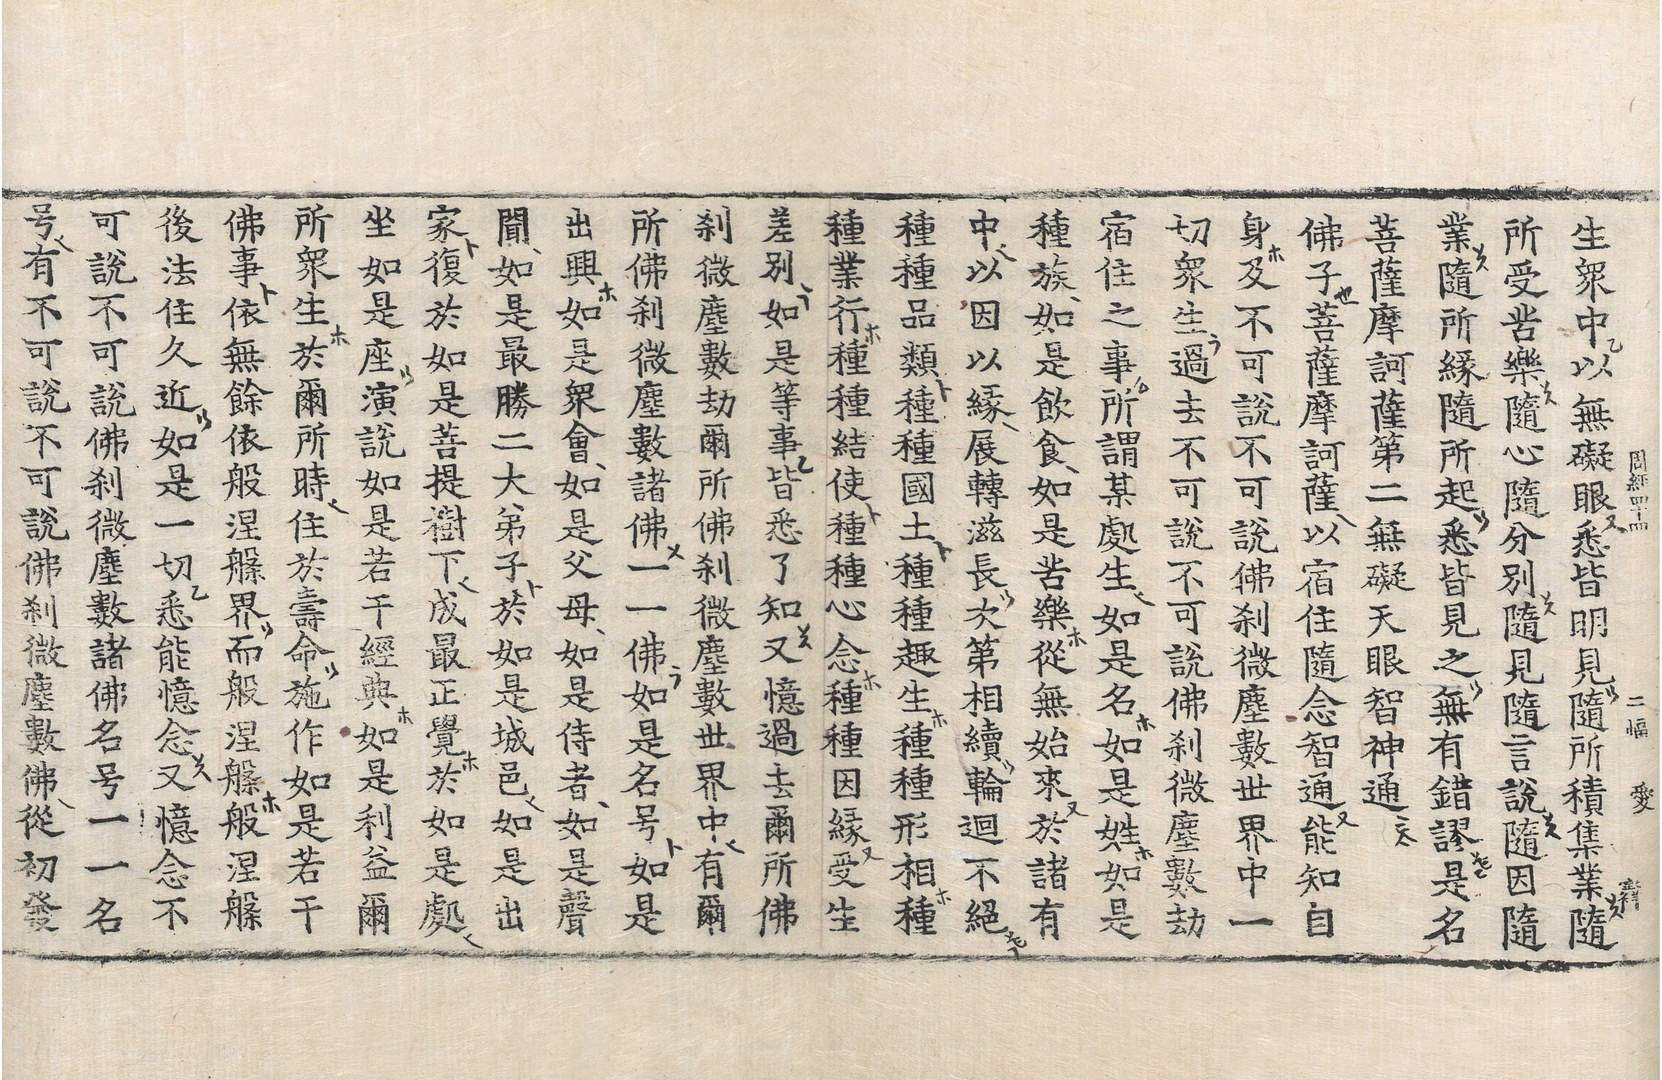 周經四十四　二幅　愛
生衆中以無礙眼悉皆明見隨所積集業隨
所受苦樂隨心隨分別隨見隨言說隨因隨
業隨所緣隨所起悉皆見之無有錯謬是名
菩薩摩訶薩第二無礙天眼智神通
佛子菩薩摩訶薩以宿住隨念智通能知自
身及不可說不可說佛刹微塵數世界中一
切衆生過去不可說不可說佛刹微塵數劫
宿住之事所謂某處生如是名如是姓如是
種族如是飲食如是苦樂從無始來於諸有
中以因以緣展轉滋長次第相續輪迴不絕
種種品類種種國土種種趣生種種形相種
種業行種種結使種種心念種種因緣受生
差別如是等事皆悉了知又憶過去爾所佛
刹微塵數劫爾所佛刹微塵數世界中有爾
所佛刹微塵數諸佛一一佛如是名号如是
出興如是衆會如是父母如是侍者如是聲
聞如是最勝二大弟子於如是城邑如是出
家復於如是菩提樹下成最正覺於如是處
坐如是座演說如是若干經典如是利益爾
所衆生於爾所時住於壽命施作如是若干
佛事依無餘依般涅槃界而般涅槃般涅槃
後法住久近如是一切悉能憶念又憶念不
可說不可說佛刹微塵數諸佛名号一一名
号有不可說不可說佛刹微塵數佛從初發